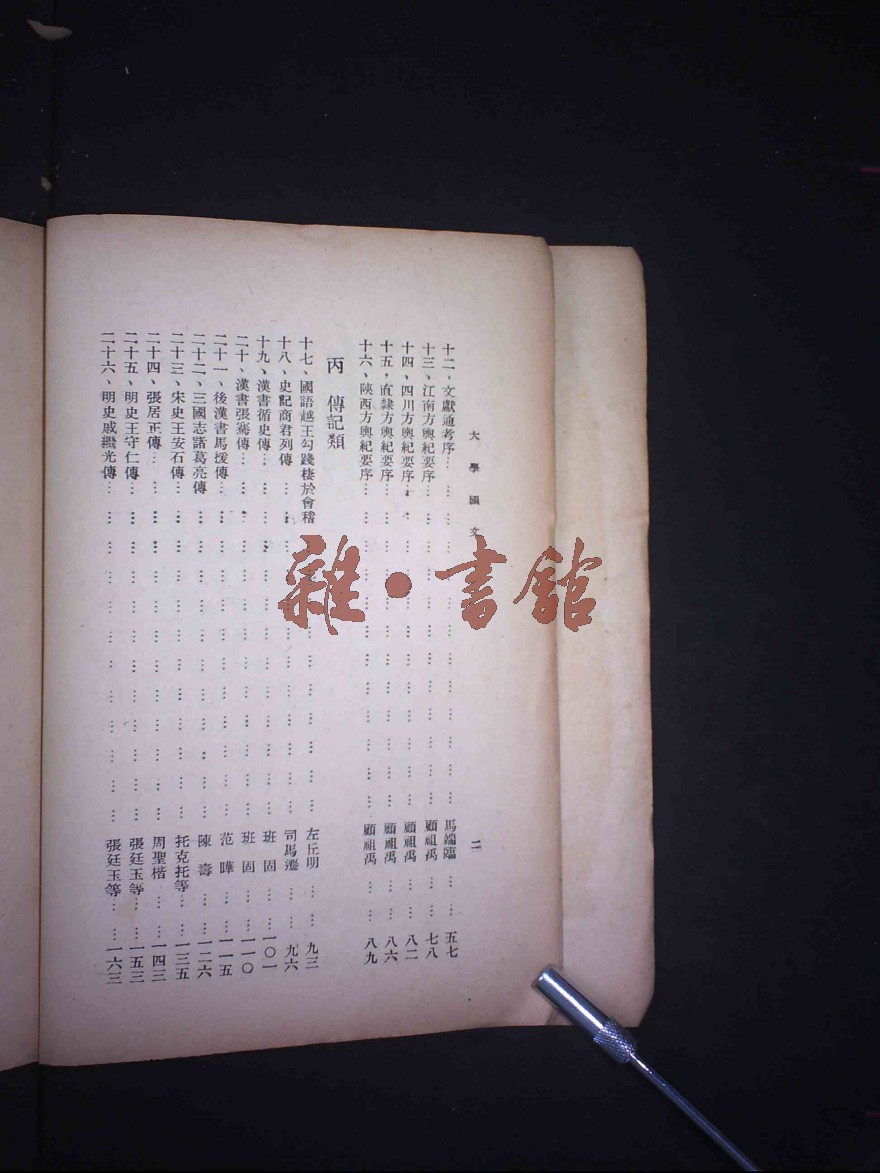 大學國文
二
十二、文獻通考序…………馬端臨……五七
十三、江南方輿紀要序…………顧祖禹……七八
十四、四川方輿紀要序…………顧祖禹……八二
十五、直隸方輿紀要序…………顧祖禹……八六
十六、陝西方輿紀要序…………顧祖禹……八九
丙 傳記類
十七、國語越王勾踐棲於會稽…………左丘明……九三
十八、史記商君列傳…………司馬遷……九六
十九、漢書循吏傳…………班固……一〇一
二十、漢書張騫傳…………班固……一一〇
二十一、後漢書馬援傳…………范曄……一一五
二十二、三國志諸葛亮傳…………陳壽……一二六
二十三、宋史王安石傳…………托克托等……一三五
二十四、張居正傳…………周聖楷……一四三
二十五、明史王守仁傳…………張廷玉等……一五三
二十六、明史戚繼光傳…………張廷玉等……一六三
雜·書館